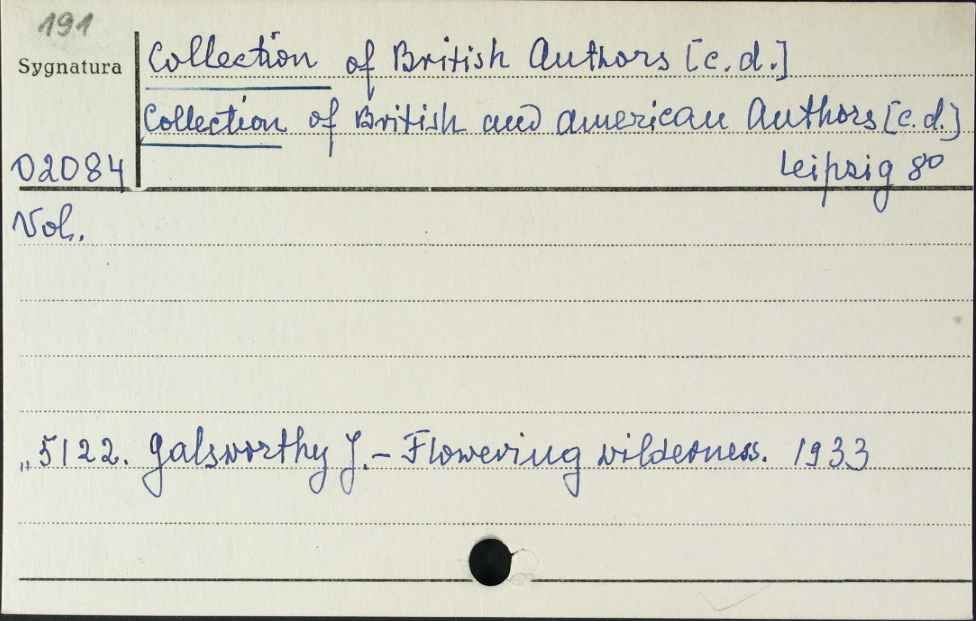 191
Sygnatura
Collection of British Authors [c.d.]
Collection of British and american Authors [c.d.]
02084
Leipzig 8°
Vol.
„ 5122. Galsworthy J. - Flowering wilderness. 1933